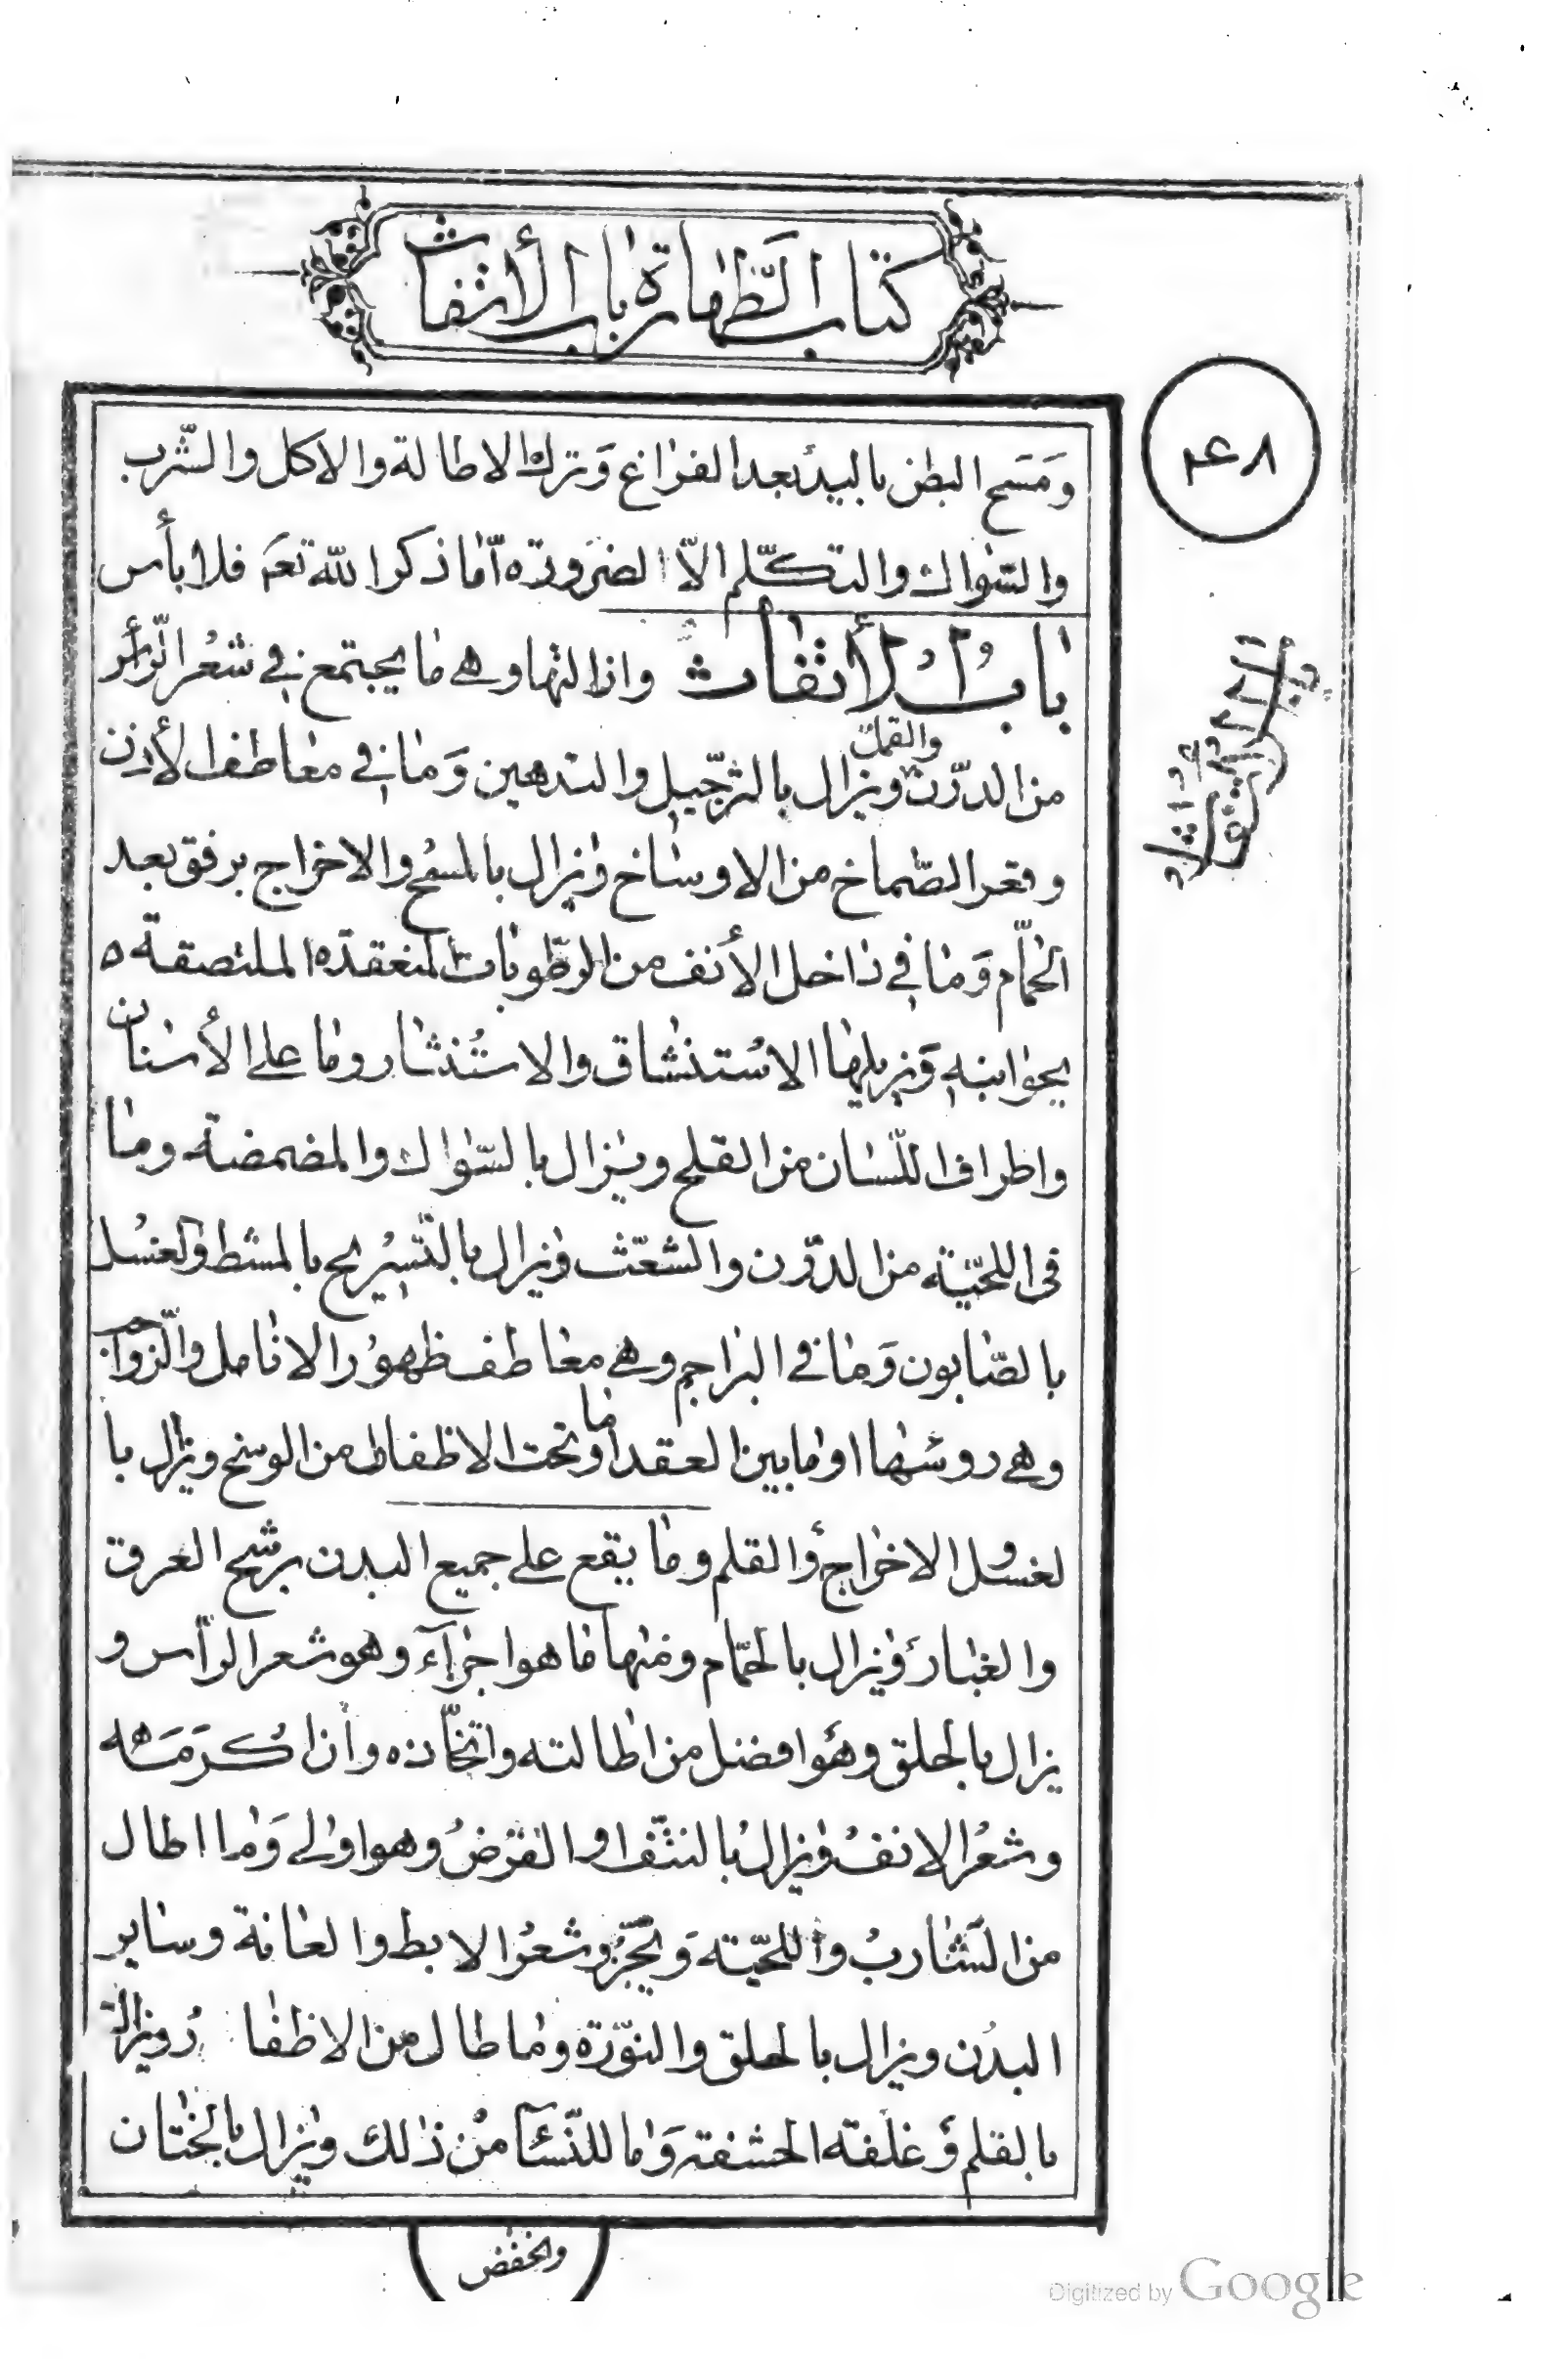 كتاب الطّهارة باب الأتفاث
۴۶۸
وَمَسَح البطن باليد بعد الفراغ وَترك الاطالة والاكل والشّرب
والسّواك والتكلّم الاّ الضرورة امّا ذكر الله تعم فلا بأس
بابُ الأتفاث وازالتها وهي ما يجتمع في شعْر الرّأس
والقمل
من الدرّن ويزال بالترجّيل والتدهين وَما في معاطف الأذن
وقعر الصّماخ من الاوساخ ويزال بالمسْح والاخراج برفق بعد
الحمّام وَما في داخل الأنف من الرطّوبات المنعقدة الملتصقة
بجوانبه وَيزيلها الاسْتنشاق والاستْنثار وما على الأسنان
واطراف اللّسان من القلح ويزال بالسّواك والمضمضة وما
في اللحيّة من الدرّن والشعّث ويزال بالتّسْريح بالمشط والغسْل
بالصّابون وَما في البراجم وهي معاطف ظهوْر الانامل والرّواجب
وهي روسْها او ما بين العقد او ما تحت الاظفار من الوسخ ويزال با
لغسل والاخراج والقلم وما يقع على جميع البدن برشح العرق
والغبار ويزال بالحمّام ومنها ما هو اجزآء وهو شعر الرّأس و
يزال بالحلق وهو افضل من اطالته واتخّاذه وان اكرمَه
وشعْر الانفْ ويزالْ بالنتّف او القرّضْ وهو اولى وَما اطال
من الشّاربْ واللحيّة وَيجّز وشعْر الابط والعانة وساير
البدْن ويزال بالحلق والنوّرة وما طال من الاظفار ويزال
بالقلم وَغلفة الحشفة وَما للنّسآء منْ ذلك ويزال بالختان
والخفض
Digitized by Google